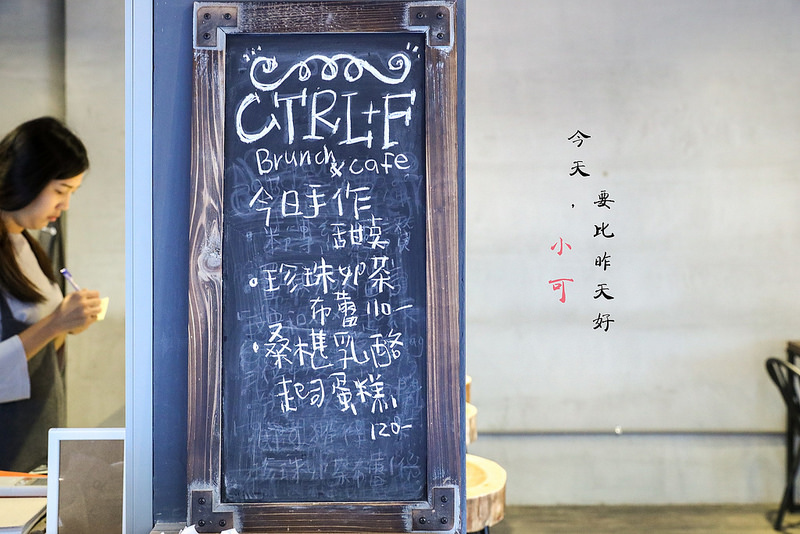 CTRL+F
Brunch & cafe
今日手作
甜蛋
•珍珠奶茶
布蕾 110-
•桑椹乳酪
起司蛋糕
120-
今天,
要比昨天好
小可